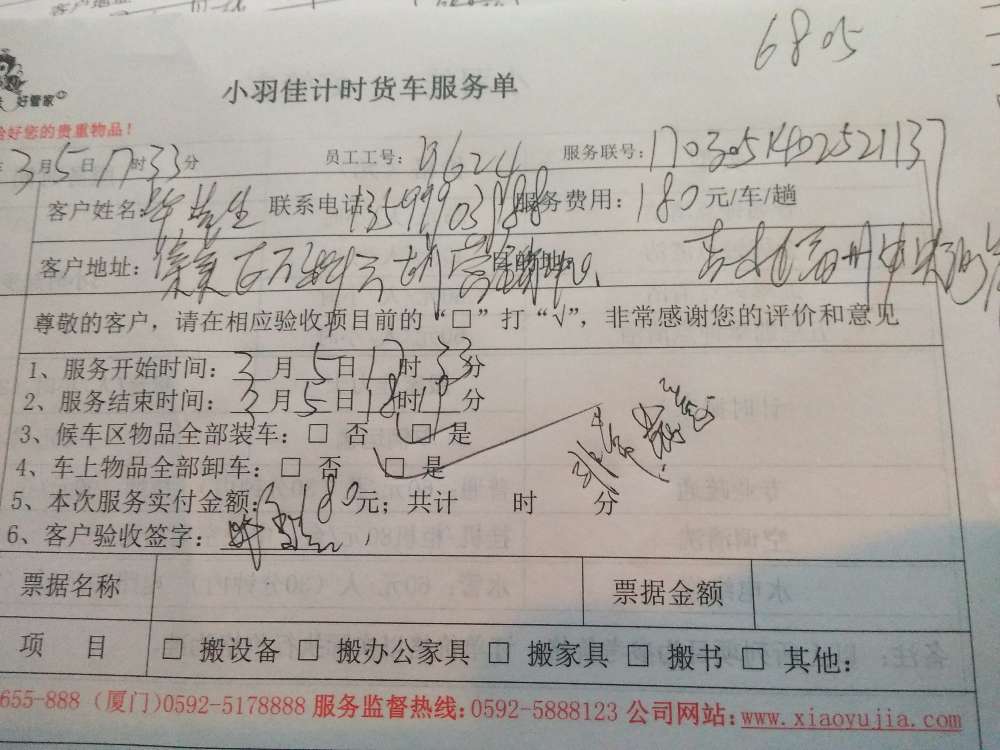 6805
小羽佳计时货车服务单
好管家
好您的贵重物品!
3月5日17时33分 员工工号: 9624 服务联号: 1703051402521137
客户姓名: 联系电话 服务费用: 180元/车/趟
客户地址:
尊敬的客户，请在相应验收项目前的“□”打“√”，非常感谢您的评价和意见
1、服务开始时间: 3月5日17时33分
2、服务结束时间: 3月5日18时19分
3、候车区物品全部装车: □ 否 □ 是
4、车上物品全部卸车: □ 否 □ 是
非常满意
5、本次服务实付金额: 180元; 共计 时 分
6、客户验收签字:
票据名称 票据金额
项 目 □ 搬设备 □ 搬办公家具 □ 搬家具 □ 搬书 □ 其他:
655-888 (厦门)0592-5178888 服务监督热线:0592-5888123 公司网站:www.xiaoyujia.com